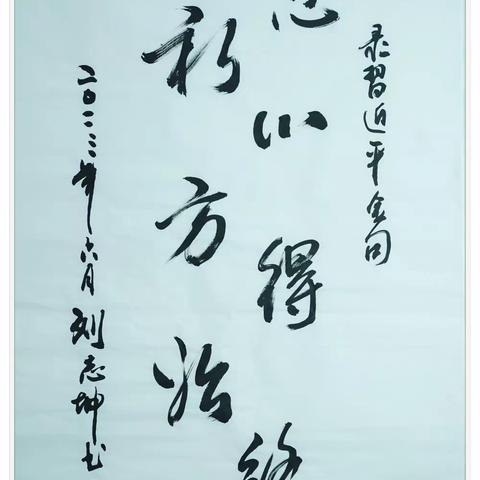 录習近平金句
忘心得终
初方始
二〇二三年六月刘志坤书